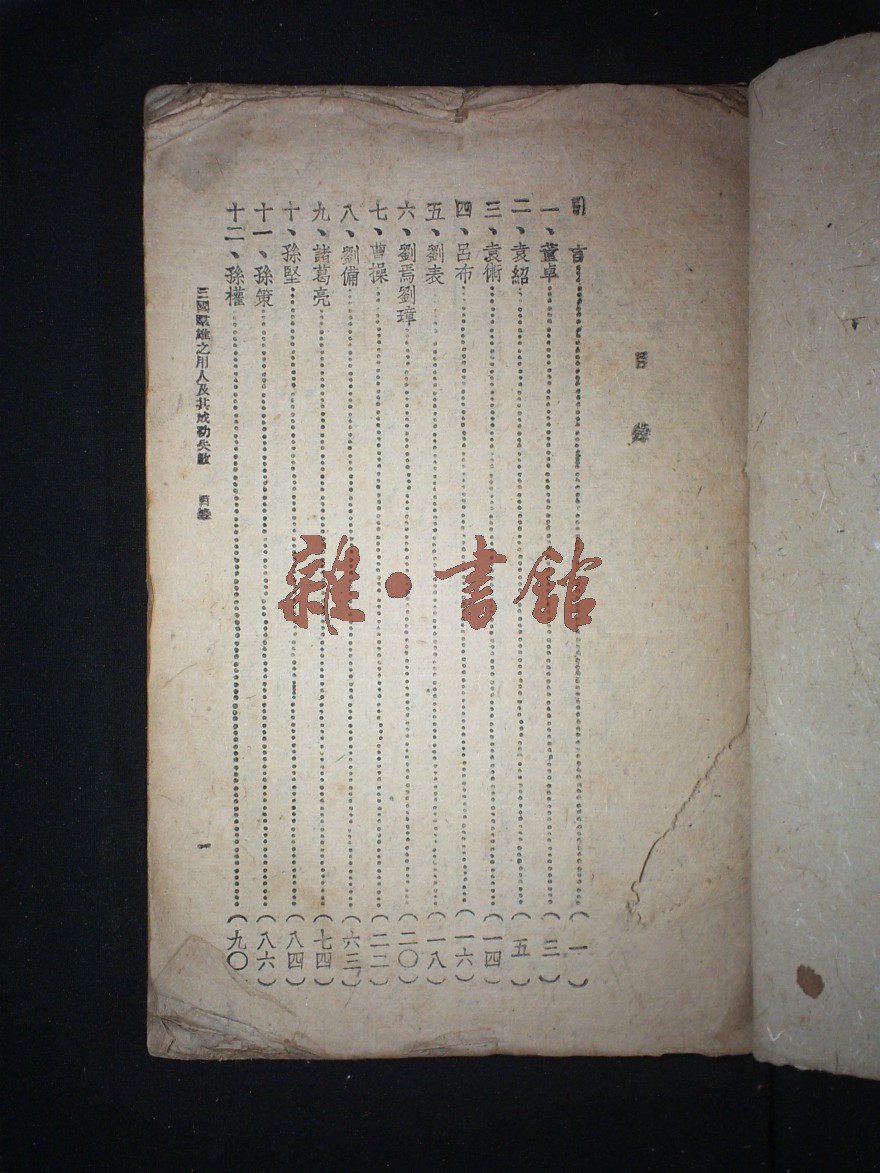 目錄
引言(一)
一、董卓(三)
二、袁紹(五)
三、袁術(一四)
四、呂布(一六)
五、劉表(一八)
六、劉焉劉璋(二〇)
七、曹操(二二)
八、劉備(六三)
九、諸葛亮(七四)
十、孫堅(八四)
十一、孫策(八六)
十二、孫權(九〇)
三國羣雄之用人及其成功失敗 目錄
一
雜·書館